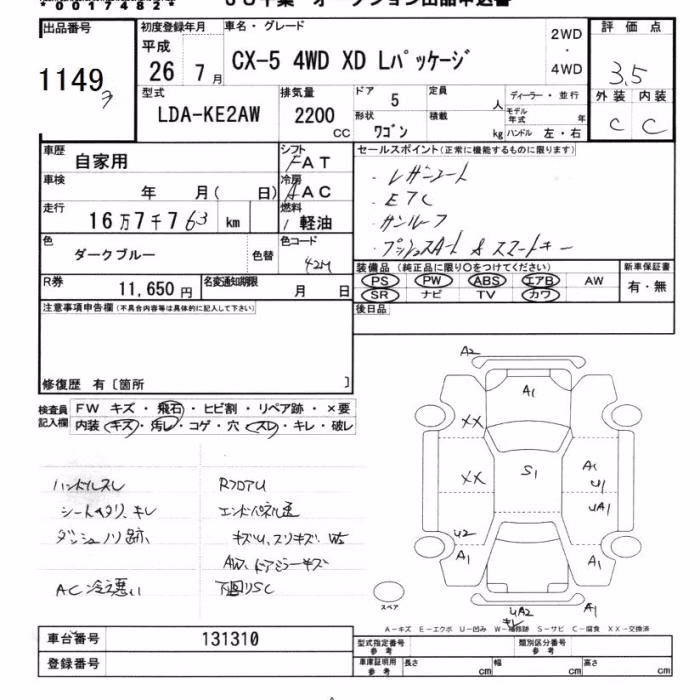 *00174824*
出品番号
1149
初度登録年月
平成
26年7月
車名・グレード
CX-5 4WD XD Lパッケージ
2WD
・
4WD
評価点
3.5
外装 内装
C C
型式
LDA-KE2AW
排気量
2200
CC
ドア 5
定員 人
形状 ワゴン
積載 kg
ディーラー・並行
モデル年式 年
ハンドル 左・右
車歴 自家用
シフト
FAT
車検 年 月(日)
冷房
AAC
走行 16万7千763 km
燃料
軽油
色 ダークブルー
色替
色コード
42M
R券 11,650円
名変通知期限 月 日
セールスポイント(正常に機能するものに限ります)
・レザーシート
・ETC
・サンルーフ
・プッシュスタート & スマートキー
装備品 (純正品に限り○をつけてください)
PS PW ABS エアB AW
SR ナビ TV カワ
新車保証書
有・無
後日品
注意事項申告欄(不具合内容等は具体的に記入して下さい)
修復歴 有〔箇所 〕
検査員記入欄
FW キズ・飛石・ヒビ割・リペア跡・×要
内装・キズ・汚レ・コゲ・穴・スレ・キレ・破レ
ハンドルスレ
シートヘタリ、キレ
ダッシュノリ跡
AC冷え悪い
RフロアU
キズU、スリキズ、
AW、ドアミラーキズ
下回りSC
A2
A1
XX
XX
S1
A1
U1
UA1
U2
A1
A1
UA2
キレ
A1
スペア
A-キズ E-エクボ U-凹み W-補修跡 S-サビ C-腐食 XX-交換済
車台番号 131310
登録番号
型式指定番号 参考
類別区分番号 参考
車庫証明用 参考
長さ cm
幅 cm
高さ cm